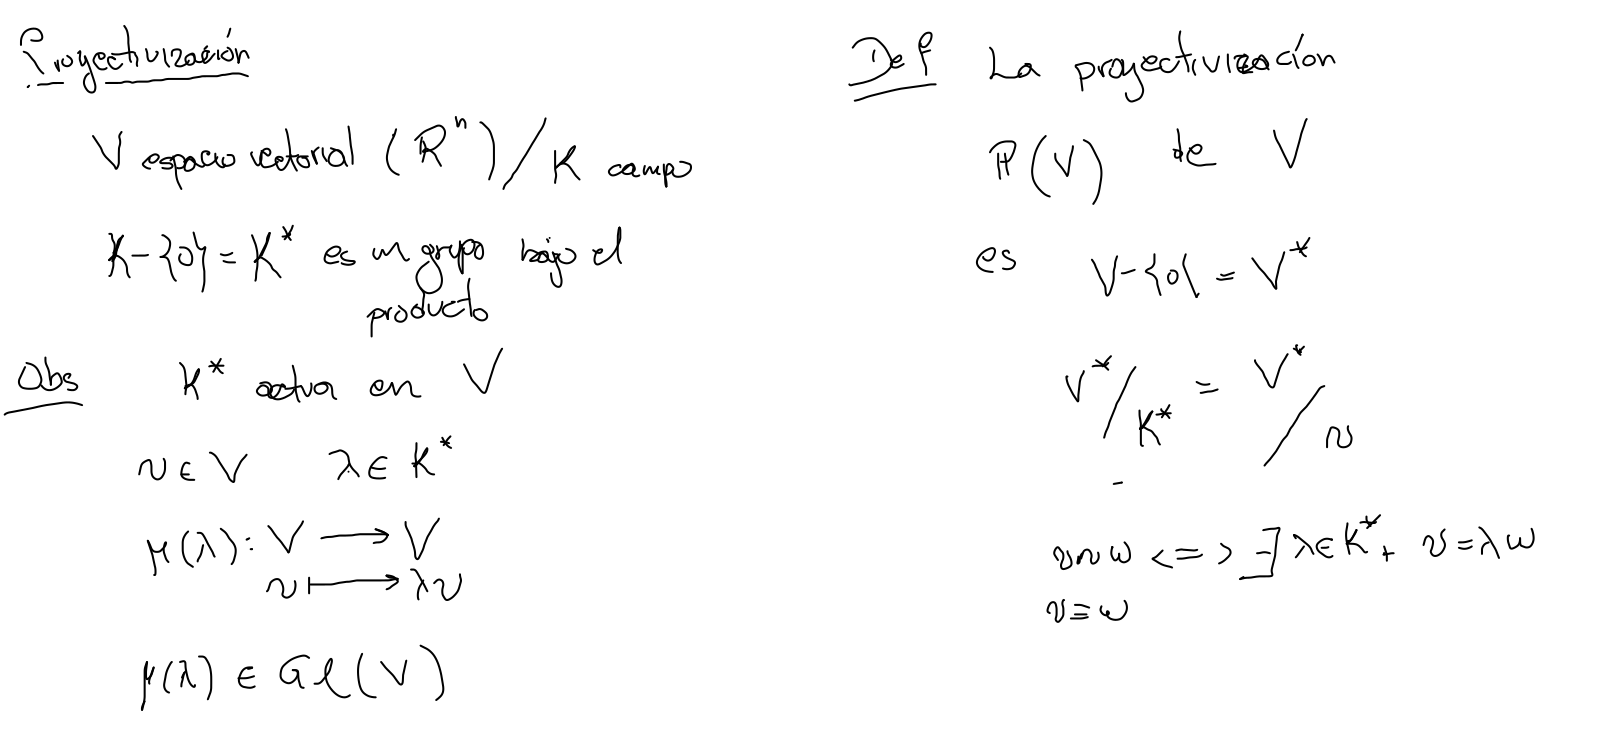 Proyectivización
V espacio vectorial (ℝⁿ)/K campo
K-{0} = K* es un grupo bajo el
producto
Obs K* actua en V
v ∈ V λ ∈ K*
μ(λ): V ⟶ V
v ⟼ λv
μ(λ) ∈ Gl(V)
Def La proyectivización
ℙ(V) de V
es V-{0} = V*
V*/K* = V*/~
v~w <=> ∃ λ∈K*, v=λw
v≡w